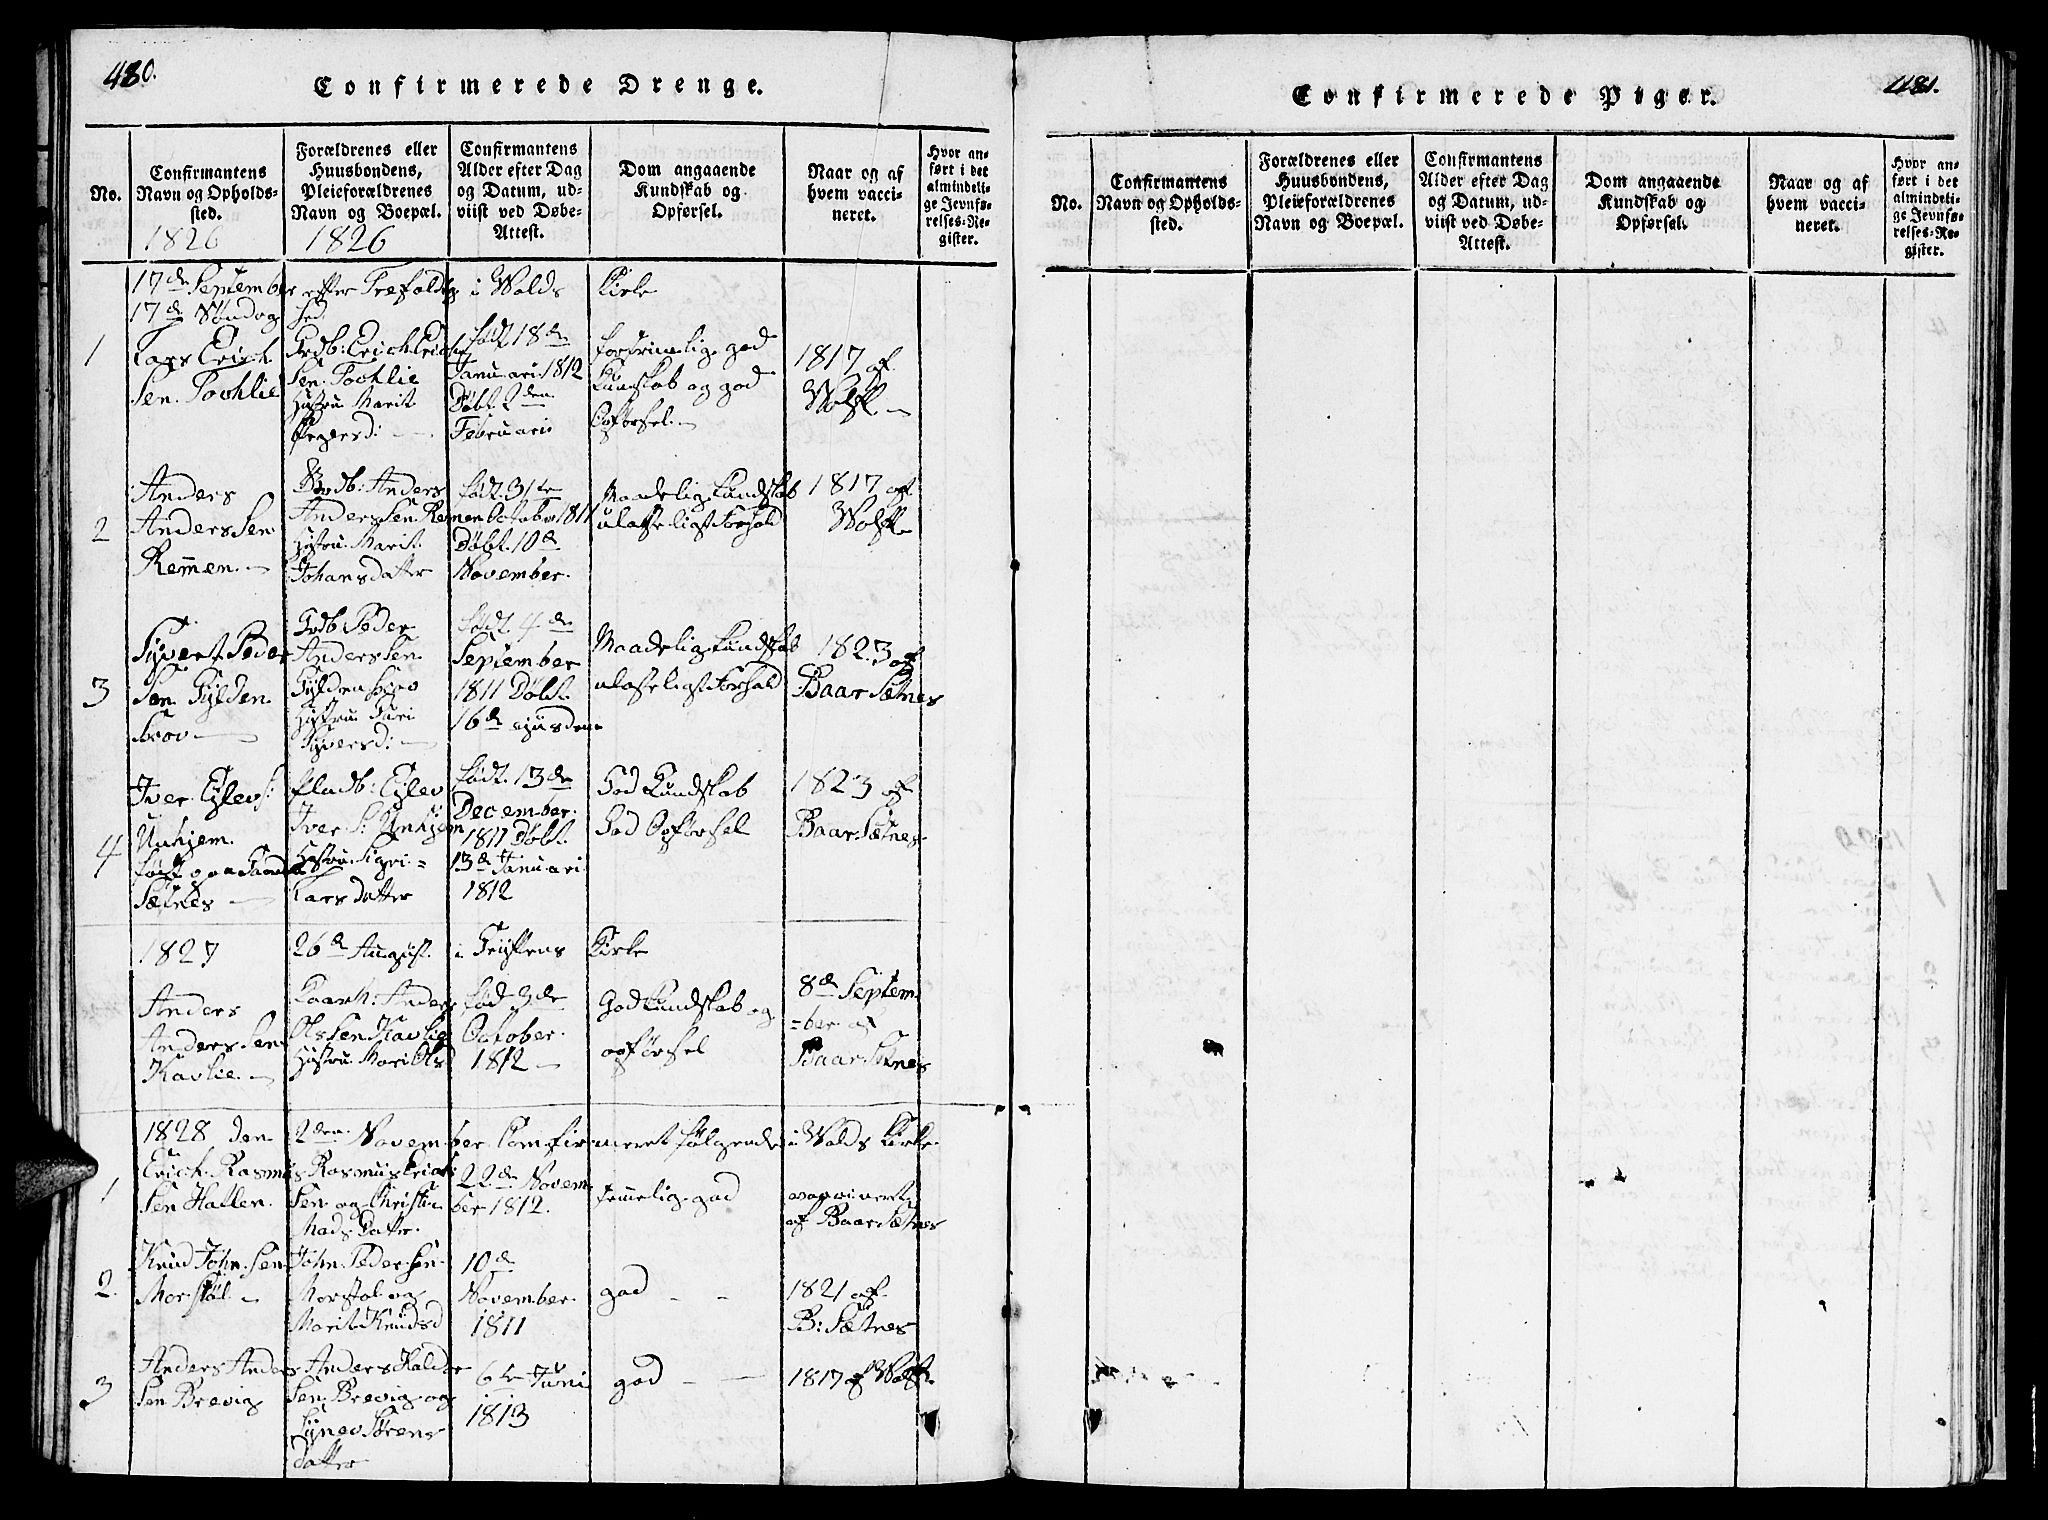 480.
Confirmerede Drenge.
No.
Confirmantens Navn og Opholds-sted.
Forældrenes eller Huusbondens, Pleieforældrenes Navn og Boepæl.
Confirmantens Alder efter Dag og Datum, ud-viist ved Døbe-Attest.
Dom angaaende Kundskab og Opførsel.
Naar og af hvem vacci-neret.
Hvor an-ført i det almindeli-ge Jevnfø-relses-Re-gister.
1826 1826
17de September efter Trefoldig i Wolds Kirke
17de Søndag hed
1
Lars Erich
Sen
Grdb: Erich Erich
Sen
Hustru Marit
født 18de
Januari 1812
Døbt 2den
Februari
god
Kundskab og god
Opførsel.
1817 af
Wolff
2
Anders
Anders Sen
Remmen.
Grdb: Anders
Anders Sen Remmen
Hustru Marit
Johansdatter
født 31te
October 1811
Døbt 10de
November.
Maadelig Kundskab
ulasteligt Forhold
1817 af
Wolff
3
Syvert Peder
Sen Gylden
Scov
Grdb Peder
Anders Sen
Gylden Scov
Hustru Guri
Syversd:
født 4de
September
1811 Døbt
16de ejusdem
Maadelig Kundskab
ulasteligt Forhold
1823 af
Baar Sætnes
4
Iver Eylevs:
Unhjem
født paa
Sætnes
Pladb: Eylev
Iver S: Unhjem
Hustru Sigri=
Larsdatter
født 13de
December
1811 Døbt
13de Januari
1812
God Kundskab
God Opførsel
1823 af
Baar Sætnes
1827 26de August i Gryttens Kirke
Anders
Anders Sen
Kavlie
Anders
Ols Sen Kavlie
Hustru Mari Olsd
fød 3de
October
1812
God Kundskab og
opførsel
8de Septem
=ber af
Baar Sætnes
1828 den 2den November Comfirmeret følgende i Wolds Kirke
1
Erich Rasmus
Sen Hatlen
Rasmus Erich
Sen og Christi
Mads Datter
22de Novem
ber 1812.
temmelig god
vaccineret
af Baar Sætnes
2.
Knud John Sen
Morstøl
John Peder Sen
Morstøl og
Marit Knudsd
10de
November
1811
god
1821 af
B: Sætnes
3
Anders Anders
Sen Brevig
Anders Haldor
Sen Brevig og
Sørens
datter
6te Juni
1813
god
1817 af Wolff
481.
Confirmerede Piger.
No.
Confirmantens Navn og Opholds-sted.
Forældrenes eller Huusbondens, Pleieforældrenes Navn og Boepæl.
Confirmantens Alder efter Dag og Datum, ud-viist ved Døbe-Attest.
Dom angaaende Kundskab og Opførsel.
Naar og af hvem vacci-neret.
Hvor an-ført i det almindeli-ge Jevnfø-relses-Re-gister.